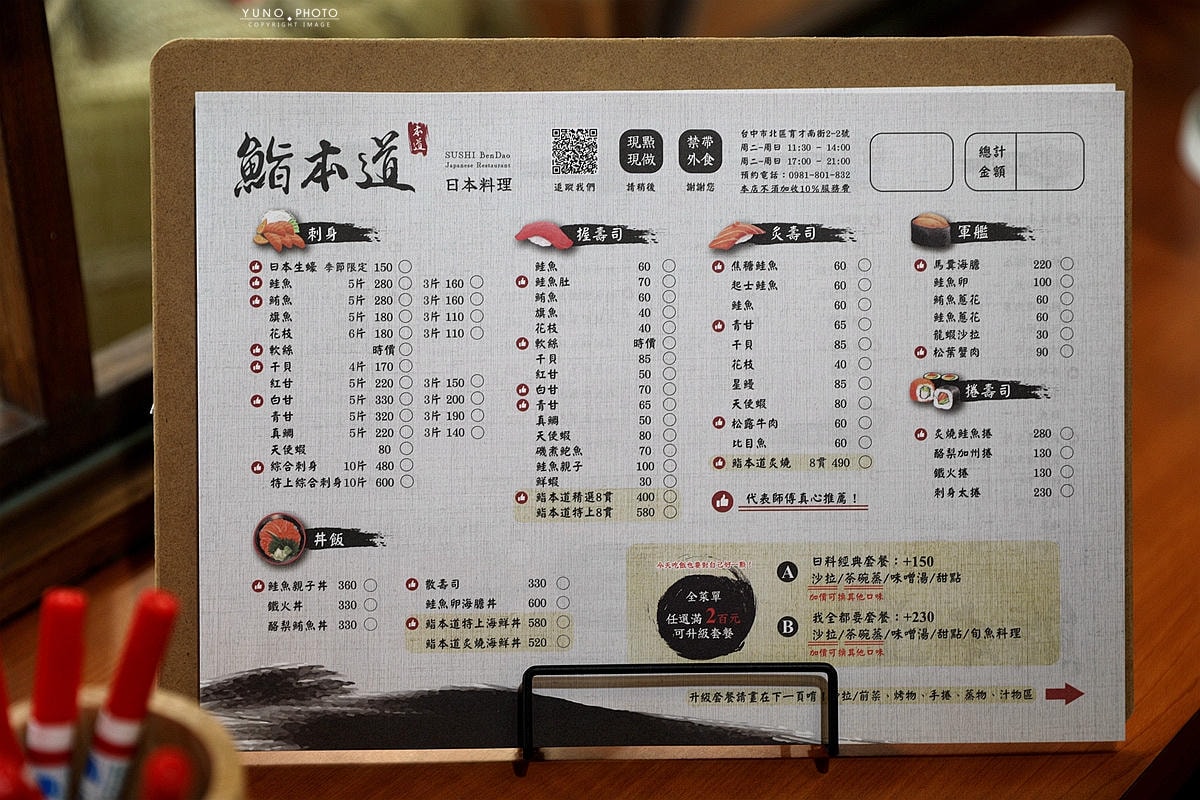 YUNO PHOTO
COPYRIGHT IMAGE
鮨本道
本道
SUSHI BenDao
Japanese Restaurant
日本料理
追蹤我們
現點
現做
請稍後
禁帶
外食
謝謝您
台中市北區育才南街2-2號
周二~周日 11:30 - 14:00
周二~周日 17:00 - 21:00
預約電話：0981-801-832
本店不須加收10%服務費
總計
金額
刺身
日本生蠔 季節限定 150
鮭魚 5片 280 3片 160
鮪魚 5片 280 3片 160
旗魚 5片 180 3片 110
花枝 6片 180 3片 110
軟絲 時價
干貝 4片 170
紅甘 5片 220 3片 150
白甘 5片 330 3片 200
青甘 5片 320 3片 190
真鯛 5片 220 3片 140
天使蝦 80
綜合刺身 10片 480
特上綜合刺身10片 600
握壽司
鮭魚 60
鮭魚肚 70
鮪魚 60
旗魚 40
花枝 40
軟絲 時價
干貝 85
紅甘 50
白甘 70
青甘 65
真鯛 50
天使蝦 80
磯煮鮑魚 70
鮭魚親子 100
鮮蝦 30
鮨本道精選8貫 400
鮨本道特上8貫 580
炙壽司
焦糖鮭魚 60
起士鮭魚 60
鮭魚 60
青甘 65
干貝 85
花枝 40
星鰻 85
天使蝦 80
松露牛肉 60
比目魚 60
鮨本道炙燒 8貫 490
代表師傅真心推薦！
軍艦
馬糞海膽 220
鮭魚卵 100
鮪魚蔥花 60
鮭魚蔥花 60
龍蝦沙拉 30
松葉蟹肉 90
捲壽司
炙燒鮭魚捲 280
酪梨加州捲 130
鐵火捲 130
刺身太捲 230
丼飯
鮭魚親子丼 360
鐵火丼 330
酪梨鮪魚丼 330
散壽司 330
鮭魚卵海膽丼 600
鮨本道特上海鮮丼 580
鮨本道炙燒海鮮丼 520
今天吃飯也要對自己好一點！
全菜單
任選滿2百元
可升級套餐
A 日料經典套餐：+150
沙拉/茶碗蒸/味噌湯/甜點
加價可換其他口味
B 我全都要套餐：+230
沙拉/茶碗蒸/味噌湯/甜點/旬魚料理
加價可換其他口味
升級套餐請畫在下一頁唷 沙拉/前菜、烤物、手捲、蒸物、汁物區